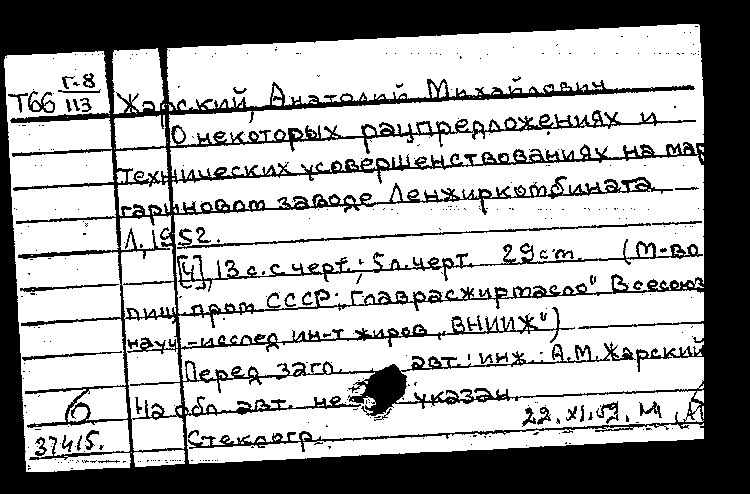 Г-8
Т66 113 Жарский, Анатолий Михайлович
О некоторых рацпредложениях и
технических усовершенствованиях на мар
гариновом заводе Ленжиркомбината.
Л., 1952.
[4], 13 с. с черт.; 5 л. черт. 29 см. (М-во
пищ. пром СССР. "Главрасжирмасло". Всесоюз
науч.-исслед. ин-т жиров "ВНИИЖ")
Перед загл. авт.: инж. А.М. Жарский
6 На обл. авт. не указан.
22. XI. 52. М
37415. Стеклогр.